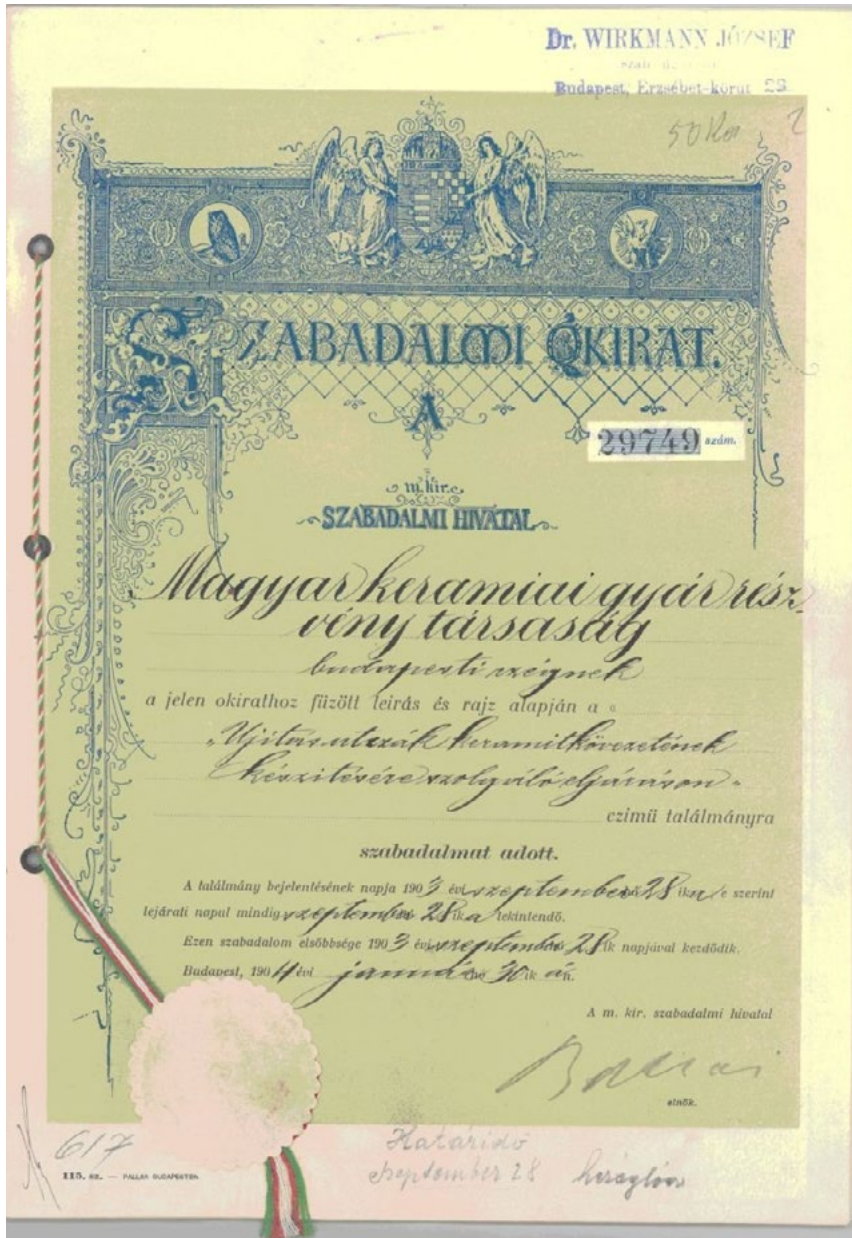 Dr. WIRKMANN JÓZSEF
Budapest, Erzsébet-körut 29
50 Kor
SZABADALMI OKIRAT.
29749 szám.
A
m. kir.
SZABADALMI HIVATAL
Magyar keramiai gyár rész-
vény társaság
budapesti czégnek
a jelen okirathoz füzött leirás és rajz alapján a
"Ujitás utczák keramitkövezetének
készitésére szolgáló eljáráson"
czimü találmányra
szabadalmat adott.
A találmány bejelentésének napja 1903 évi szeptember 28 ika, e szerint
lejárati napul mindig szeptember 28 ika tekintendő.
Ezen szabadalom elsőbbsége 1903 évi szeptember 28 ik napjával kezdődik.
Budapest, 1904 évi január 30 ik án.
A m. kir. szabadalmi hivatal
elnök.
617
Határidő
szeptember 28
115. sz. — PALLAS BUDAPESTEN